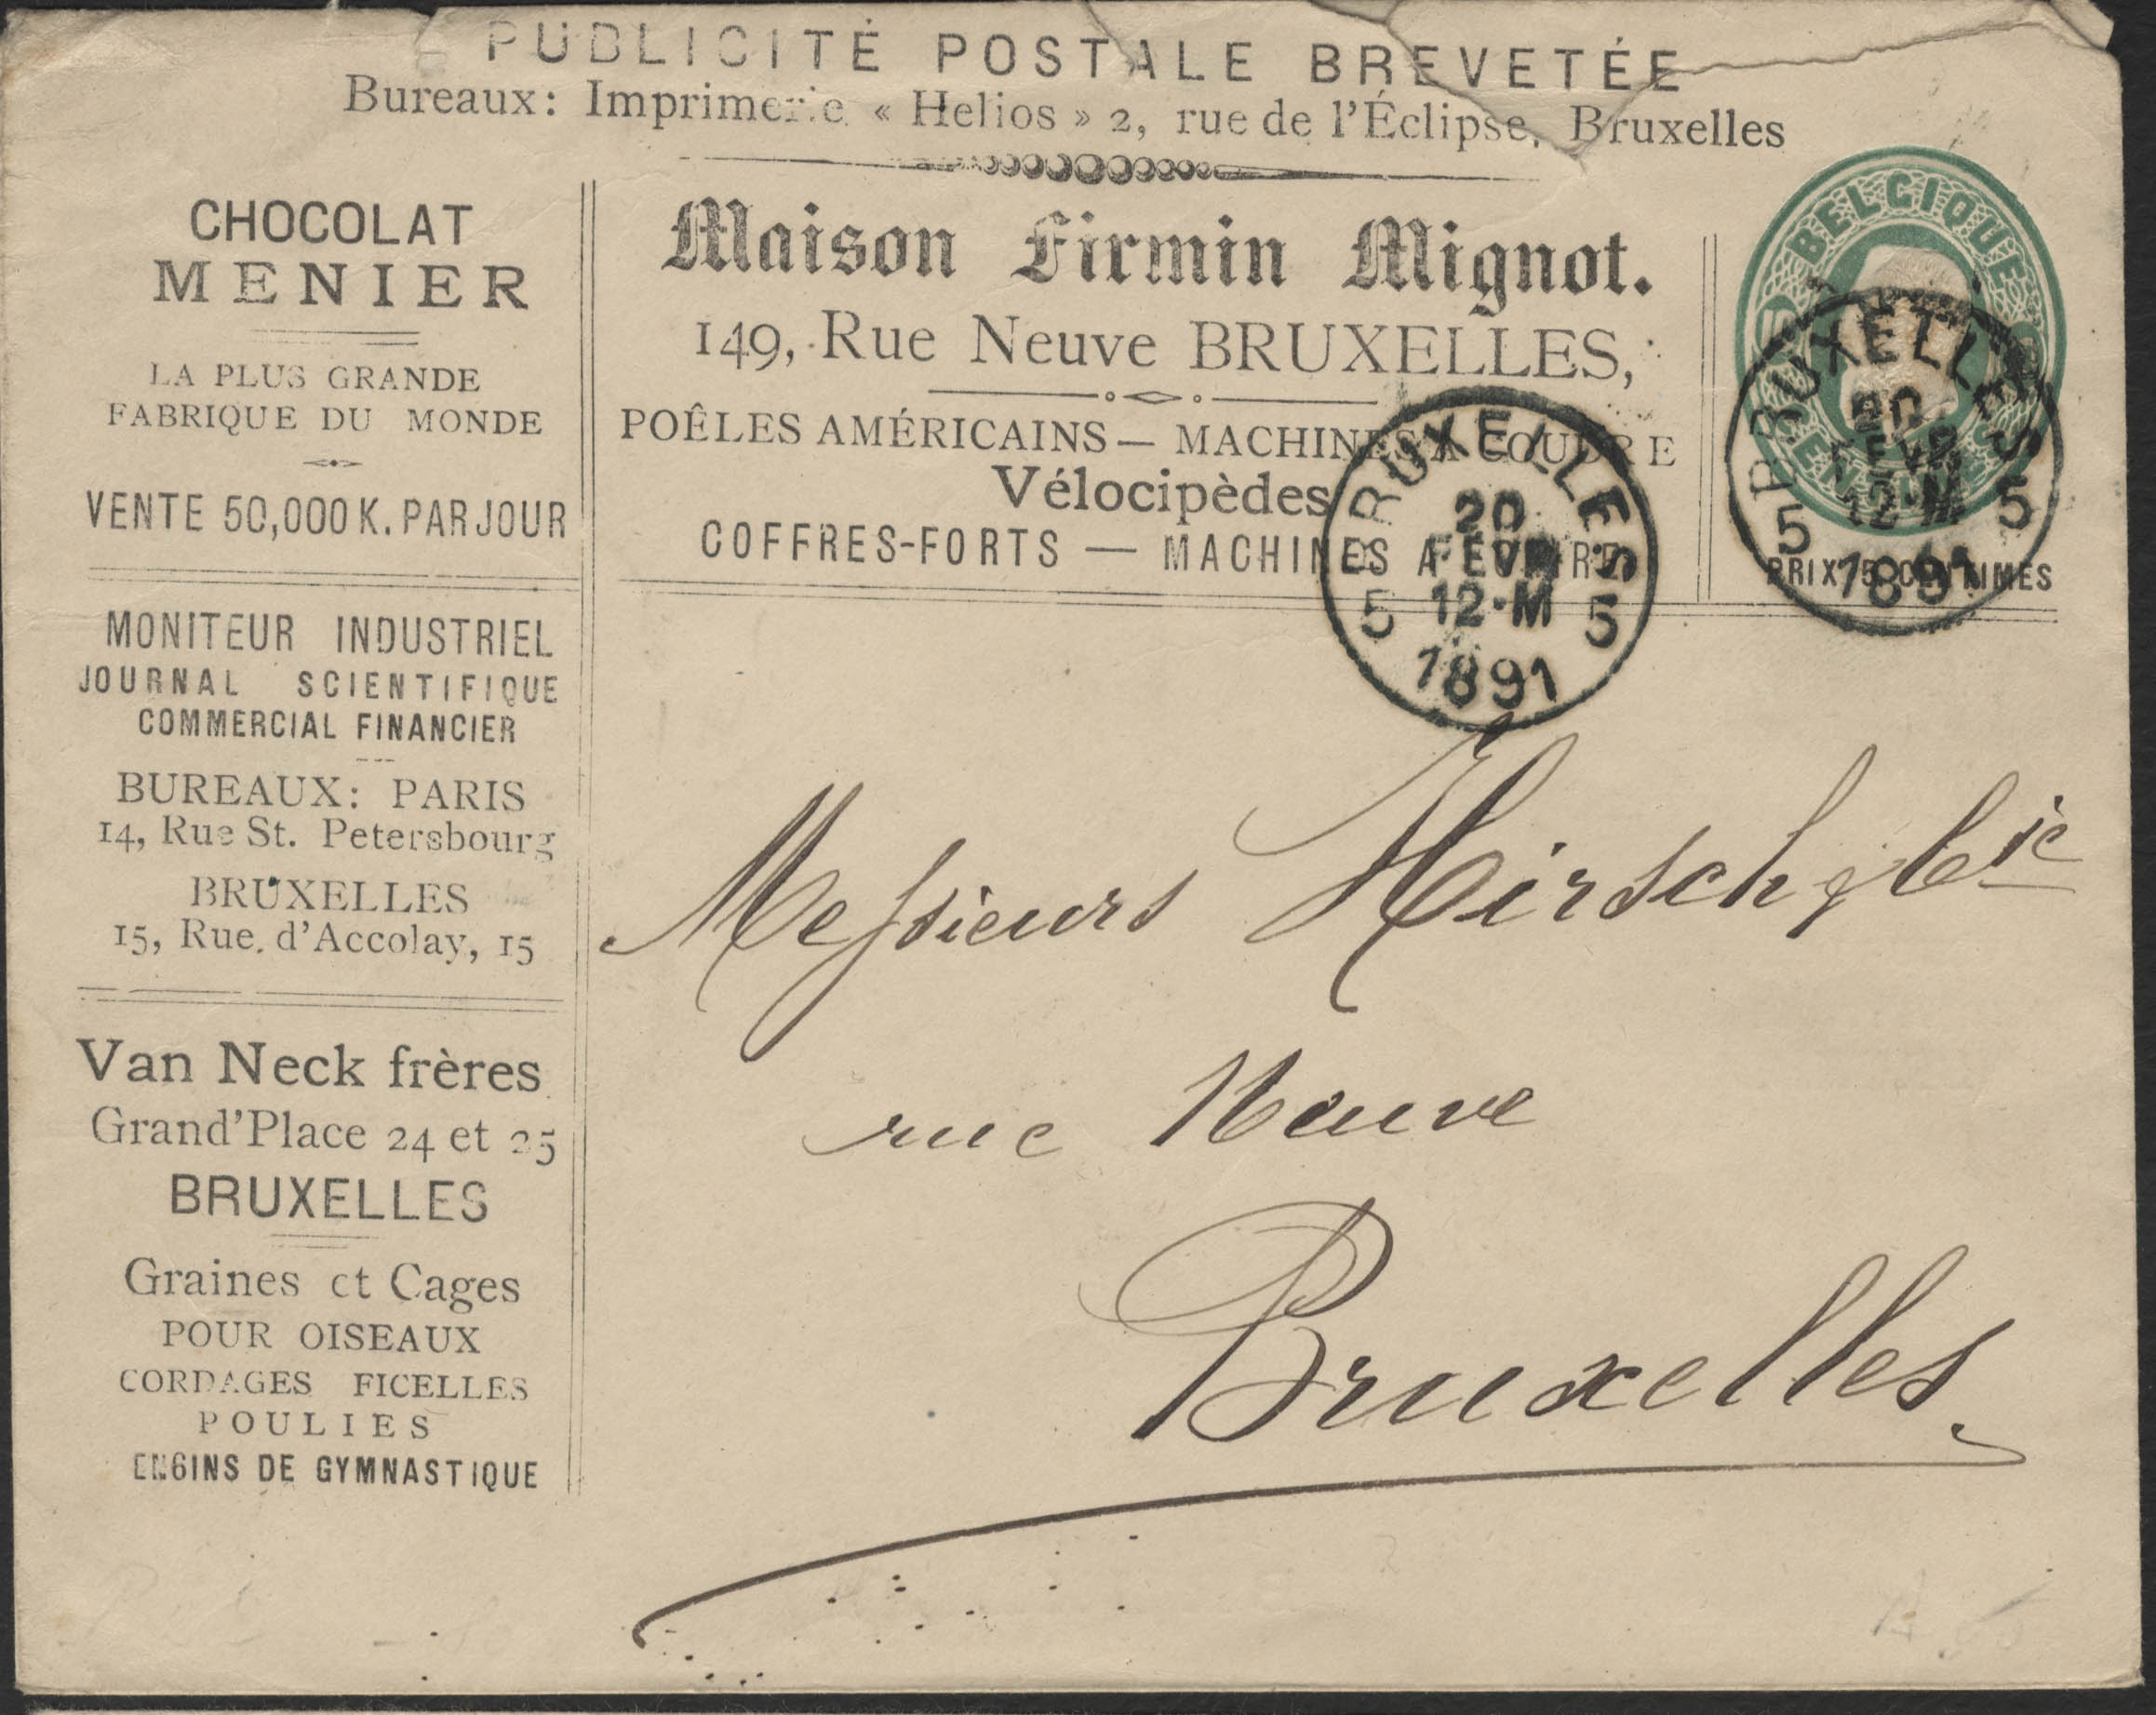 PUBLICITÉ POSTALE BREVETÉE
Bureaux: Imprimerie « Helios » 2, rue de l'Éclipse, Bruxelles
CHOCOLAT
MENIER
LA PLUS GRANDE
FABRIQUE DU MONDE
VENTE 50,000 K. PAR JOUR
MONITEUR INDUSTRIEL
JOURNAL SCIENTIFIQUE
COMMERCIAL FINANCIER
BUREAUX: PARIS
14, Rue St. Petersbourg
BRUXELLES
15, Rue. d'Accolay, 15
Van Neck frères
Grand'Place 24 et 25
BRUXELLES
Graines et Cages
POUR OISEAUX
CORDAGES FICELLES
POULIES
ENGINS DE GYMNASTIQUE
Maison Firmin Mignot.
149, Rue Neuve BRUXELLES,
POÊLES AMÉRICAINS — MACHINES A COUDRE
Vélocipèdes
COFFRES-FORTS — MACHINES A ÉCRIRE
BELGIQUE
PRIX 5 CENTIMES
BRUXELLES
20
FEVR
12-M
5 5
1891
BRUXELLES
20
FEVR
12-M
5 5
1891
Messieurs Hirsch & Cie
rue Neuve
Bruxelles